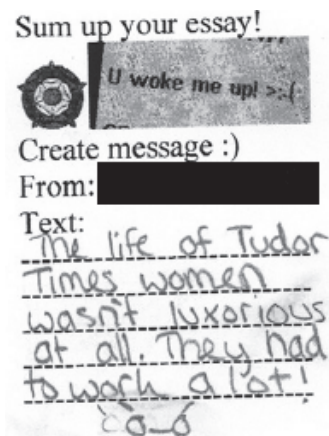 Sum up your essay!
U woke me up! >:-(
Create message :)
From:
Text:
The life of Tudor
Times women
wasn't luxorious
at all. They had
to work a lot!